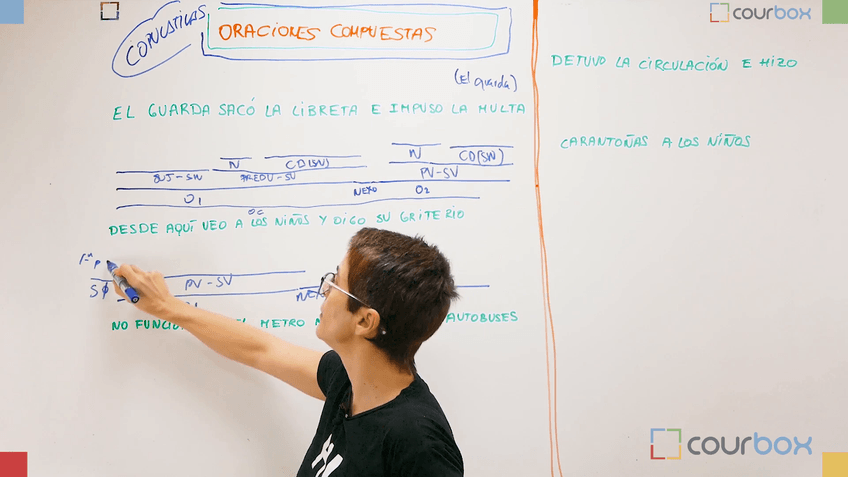 COPULATIVAS
ORACIONES COMPUESTAS
(El guarda)
EL GUARDA SACÓ LA LIBRETA E IMPUSO LA MULTA
N CD(SN) N CD(SN)
SUJ-SN PREDV-SV PV-SV
O1 NEXO O2
OC
DESDE AQUÍ VEO A LOS NIÑOS Y OIGO SU GRITERIO
1ª P
PV-SV
NEXO
NO EL METRO AUTOBUSES
DETUVO LA CIRCULACIÓN E HIZO
CARANTOÑAS A LOS NIÑOS
courbox
courbox